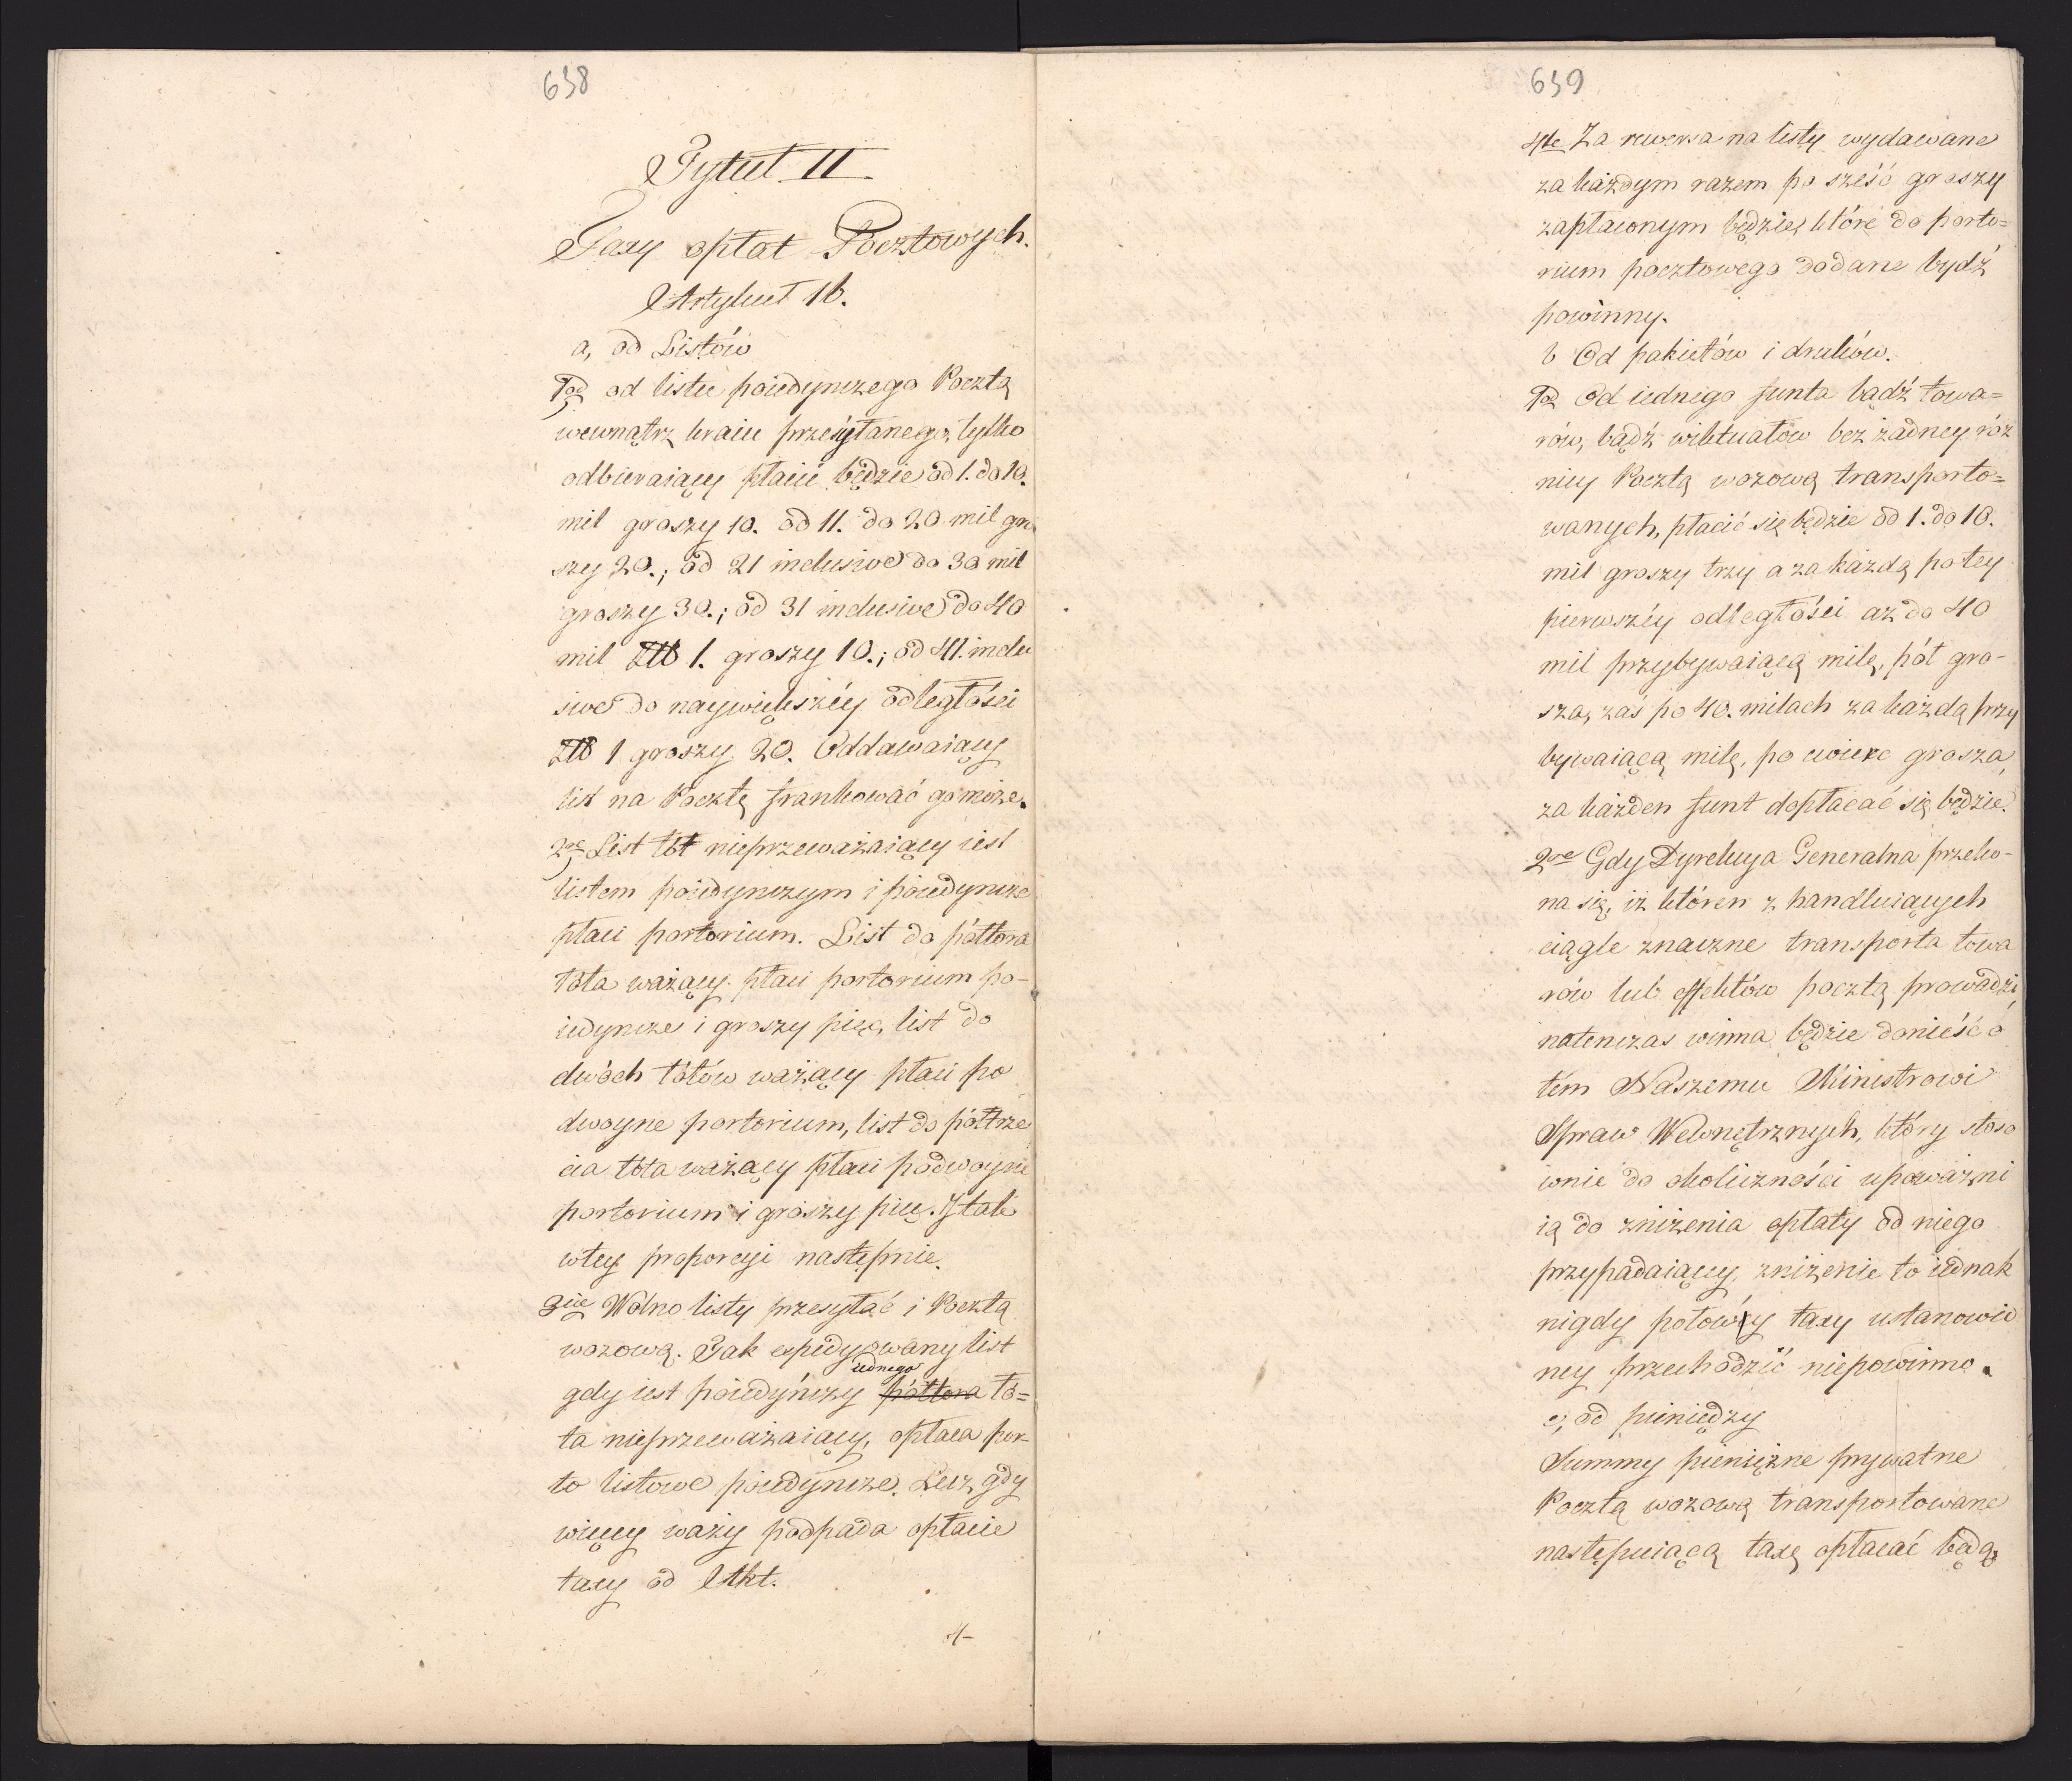 638
Tytuł II
Taxy opłat Pocztowych.
Artykuł 16.
a, od Listów
1od od listu poiedynczego Pocztą
wewnątrz kraiu przesyłanego, tylko
odbieraiący płacić będzie od 1. do 10.
mil groszy 10. od 11. do 20 mil gro
szy 20.; od 21 inclusive do 30 mil
groszy 30.; od 31 inclusive do 40
mil Złł 1. groszy 10.; od 41. inclu
sive do naywiększéy odległości
Złł 1 groszy 20. Oddawaiący
list na Pocztę frankować go może.
2re List łót nieprzeważaiący iest
listem poiedynczym i poiedyncze
płaci portorium. List do półtora
łóta ważący płaci portorium po-
iedyncze i groszy pięć, list do
dwóch łótów ważący płaci po
dwoyne portorium, list do półtrze
cia łóta ważący płaci podwoyne
portorium i groszy pięć. I tak
wtey proporcyi następnie.
3cie Wolno listy przesyłać i Pocztą
wozową. Tak expedyowany list
gdy iest poiedyńczy półtora iednego łó=
ta nieprzeważaiący, opłaca por-
to listowe poiedyncze. Lecz gdy
więcey waży podpada opłacie
taxy od Akt.
4-
639
4te Za rewersa na listy wydawane
za każdym razem po sześć groszy
zapłaconym będzie, które do porto=
rium pocztowego dodane bydź
powinny.
b Od pakietów i druków.
1o Od iednego funta bądź towa=
rów, bądź wiktuałów bez żadney róż
nicy Pocztą wozową transporto=
wanych, płacić się będzie od 1. do 10.
mil groszy trzy a za każdą po tey
pierwszéy odległości aż do 40
mil przybywaiącą milę, pół gro-
sza, zaś po 40. milach za każdą przy
bywaiącą milę, po ćwierc grosza,
za każden funt dopłacać się będzie.
2re Gdy Dyrekcya Generalna przeko-
na się, iż któren z handluiących
ciągle znaczne transporta towa
rów lub effektów pocztą prowadzi,
natenczas winna będzie donieść o
tém Naszemu Ministrowi
Spraw Wewnętrznych, który stoso
wnie do okoliczności upoważni
ią do zniżenia opłaty od niego
przypadaiącey, zniżenie to iednak
nigdy połowy taxy ustanowio
ney przechodzić niepowinno.
c, od pieniędzy
Summy pieniężne prywatne
Pocztą wozową transportowane
następuiącą taxę opłacać będą,